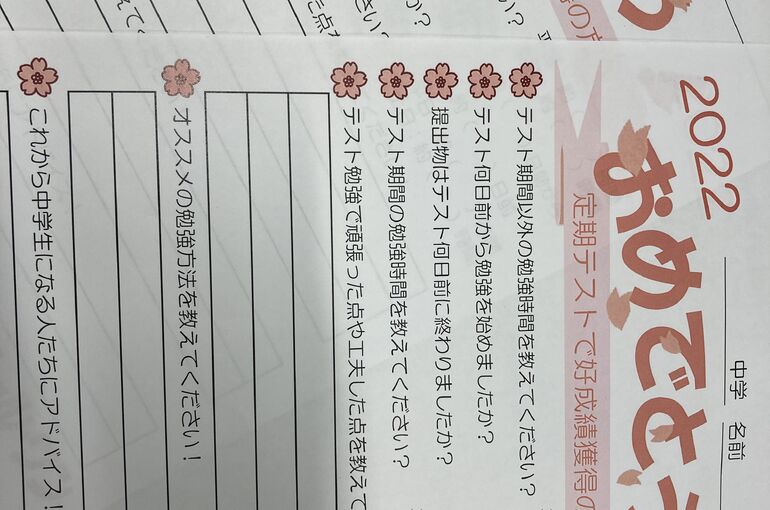 2022
中学 名前
おめでとう
定期テストで好成績獲得の
テスト期間以外の勉強時間を教えてください?
テスト何日前から勉強を始めましたか?
提出物はテスト何日前に終わりましたか?
テスト期間の勉強時間を教えてください?
テスト勉強で頑張った点や工夫した点を教えて
オススメの勉強方法を教えてください!
これから中学生になる人たちにアドバイス!